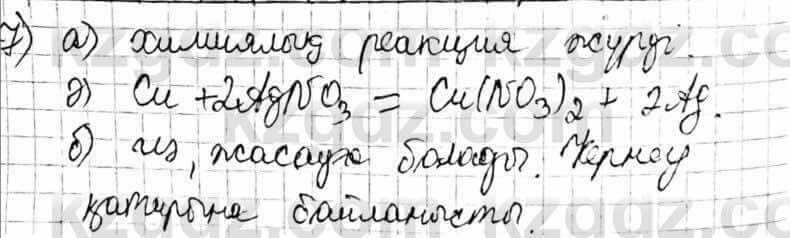 7) а) химиялық реакция жүрді.
ә) Cu + 2AgNO3 = Cu(NO3)2 + 2Ag.
б) иә, жасауға болады. Кернеу
қатарына байланысты.